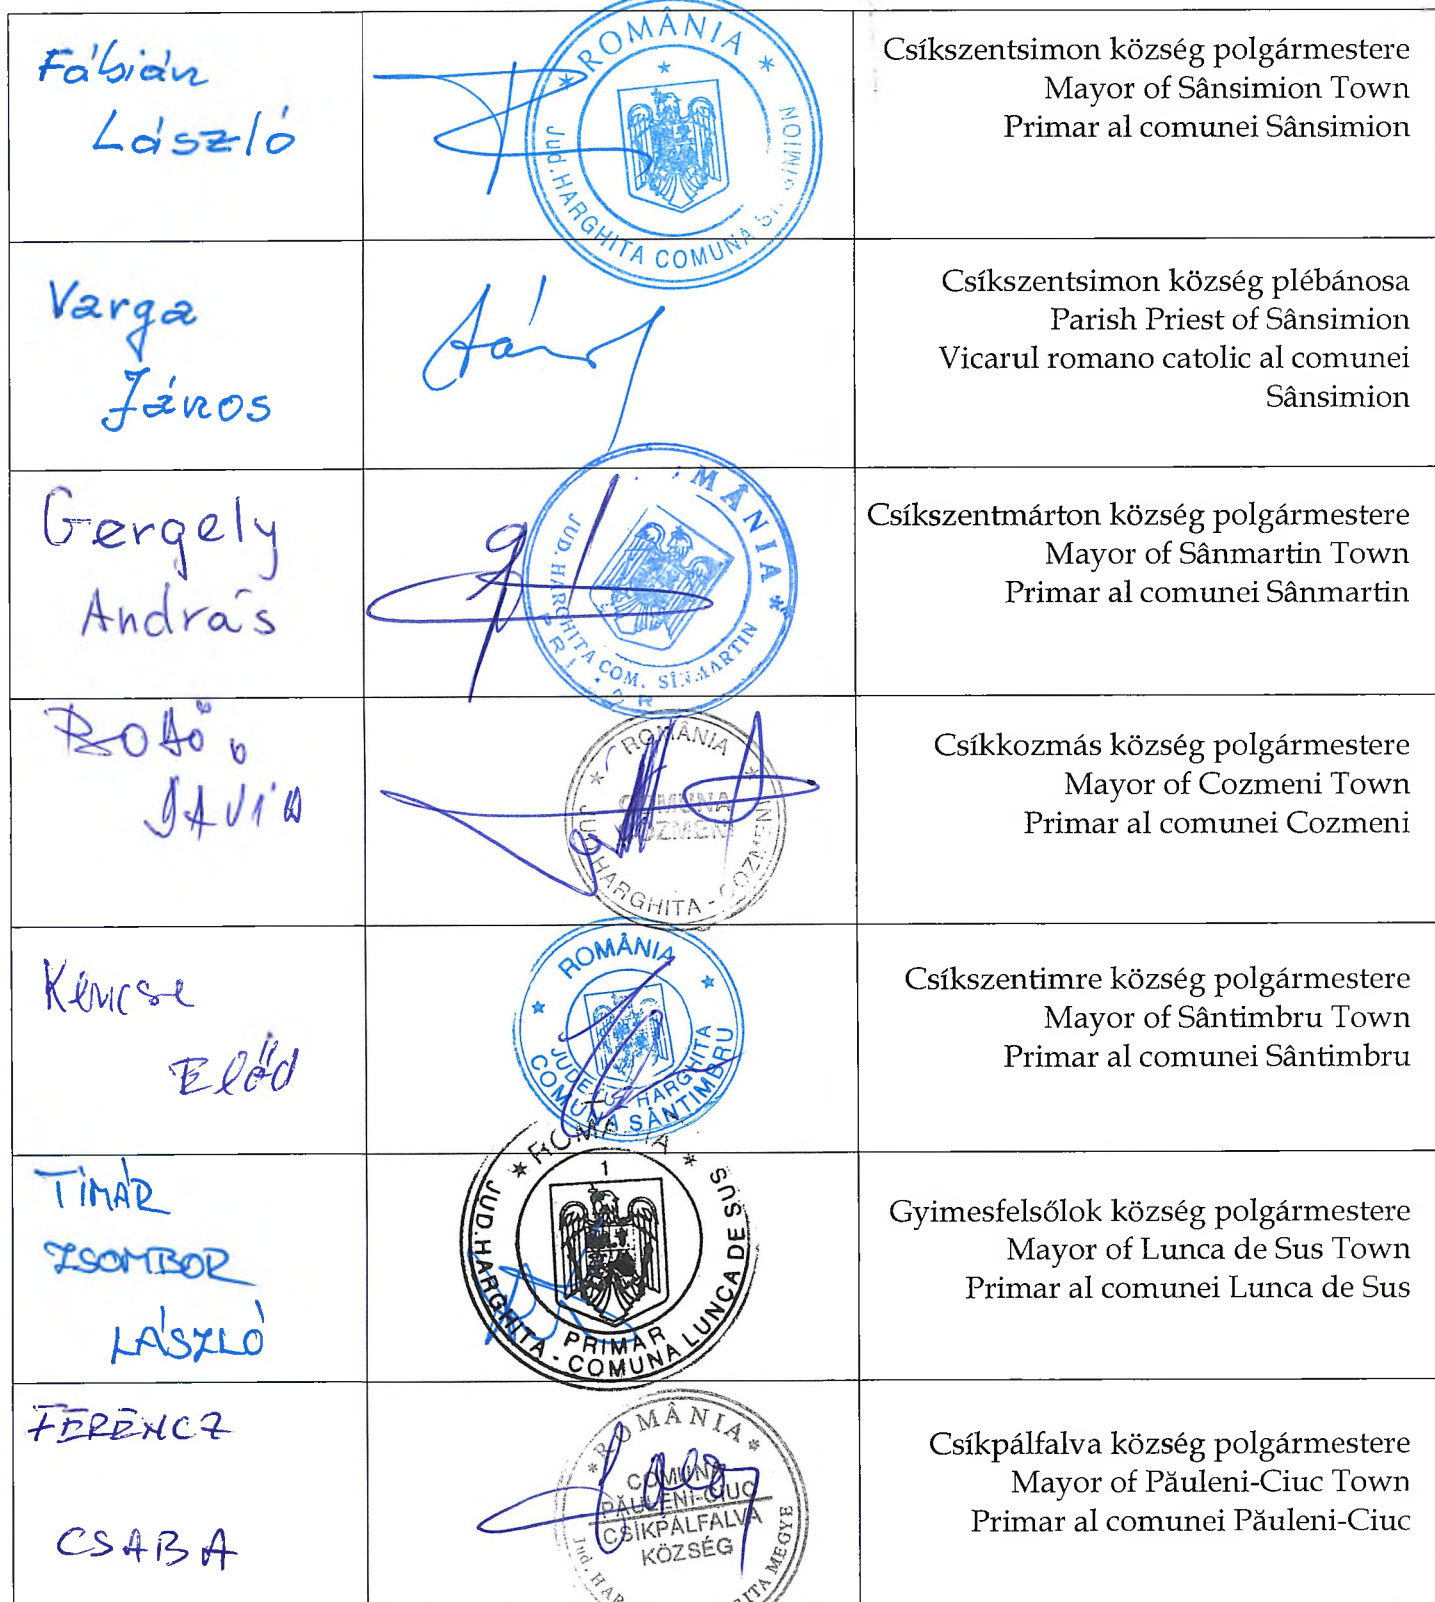 Fábián
László
ROMÂNIA
Jud. HARGHITA COMUNA
Csíkszentsimon község polgármestere
Mayor of Sânsimion Town
Primar al comunei Sânsimion
Varga
János
Csíkszentsimon község plébánosa
Parish Priest of Sânsimion
Vicarul romano catolic al comunei
Sânsimion
Gergely
András
JUD. HARGHITA COM. SÎNMARTIN
Csíkszentmárton község polgármestere
Mayor of Sânmartin Town
Primar al comunei Sânmartin
ROMÂNIA
COMUNA
COZMENI
JUD HARGHITA - COZMENI
Csíkkozmás község polgármestere
Mayor of Cozmeni Town
Primar al comunei Cozmeni
Előd
ROMÂNIA
JUDEȚUL HARGHITA
COMUNA SÂNTIMBRU
Csíkszentimre község polgármestere
Mayor of Sântimbru Town
Primar al comunei Sântimbru
TIMÁR
ZSOMBOR
LÁSZLÓ
1
PRIMAR
JUD. HARGHITA - COMUNA LUNCA DE SUS
Gyimesfelsőlok község polgármestere
Mayor of Lunca de Sus Town
Primar al comunei Lunca de Sus
FERENCZ
CSABA
ROMÂNIA
COMUNA
PĂULENI-CIUC
CSÍKPÁLFALVA
KÖZSÉG
Csíkpálfalva község polgármestere
Mayor of Păuleni-Ciuc Town
Primar al comunei Păuleni-Ciuc